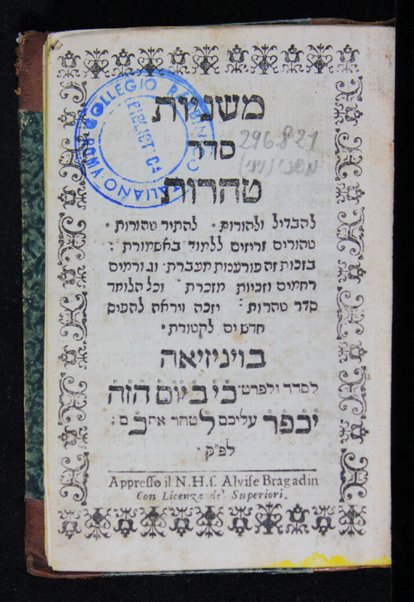 משניות
סדר
טהרות
להבדיל ולהורות · להתיר טהורות ·
טהורים זריזים ללמוד באשמורת :
בזכות זה פורענות מעברת · וגורמים
רחמים וזכיות מזכרת · וכל הלומד
סדר טהרות : יזכה ויראה להפיס
חדשים לקטורת ·
בויניזיאה
לסדר ולפרט כי ביום הזה
יכפר עליכם לטהר אתכם :
לפ״ק ·
Appresso il N. H. s. Alvise Bragadin
Con Licenza de' Superiori.
COLLEGIO RABBINICO ITALIANO ROMA
BIBLIOTECA
296.821